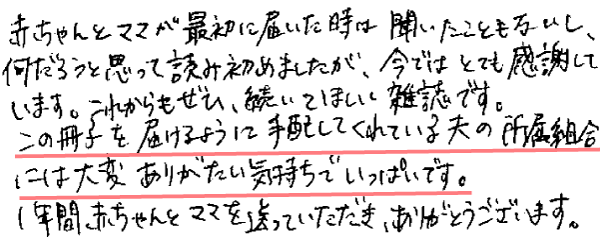 赤ちゃんとママが最初に届いた時は聞いたこともないし、
何だろうと思って読み初めましたが、今ではとても感謝して
います。これからもぜひ、続いてほしい雑誌です。
この冊子を届けるように手配してくれている夫の所属組合
には大変ありがたい気持ちでいっぱいです。
1年間、赤ちゃんとママを送っていただき、ありがとうございます。